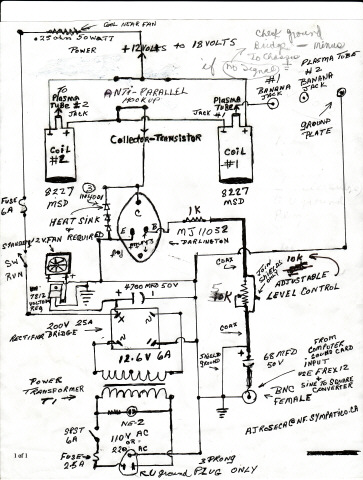 COIL NEAR FAN
.25 ohm 50 WATT
POWER
+12 VOLTS to 18 VOLTS
Check ground
Bridge - minus
To Chassis
if no signal
PLASMA TUBE
#2
BANANA
JACK
#1
BANANA
JACK
TO
PLASMA
TUBE #2
JACK
ANTI-PARALLEL
HOOKUP
PLASMA
TUBE #1
JACK
GROUND
PLATE
Collector-Transistor
COIL
#2
COIL
#1
8227
MSD
8227
MSD
3
1N4001
HEATSINK
REQUIRED
C
E
B
1K
MJ11032
DARLINGTON
FUSE
6A
STANDARD 12V FAN
SW
RUN
7812
VOLTAGE
REG
4700 MFD 50V
COAX
JOIN
SHIELDS
10K
ADJUSTABLE
LEVEL CONTROL
10K
COAX
200V 25A
RECTIFIER
BRIDGE
12.6V 6A
SHIELD
GROUND
68 MFD
50V
FROM
COMPUTER
SOUND CARD
INPUT
USE FREX12
SINE TO SQUARE
CONVERTER
BNC
FEMALE
POWER
TRANSFORMER
T1
NE-2
SPST
6A
110V AC
OR
220 AC
FUSE
2.5A
3 PRONG
GROUND PLUG ONLY
AJROSECA@NF.SYMPATICO.CA
1 of 1